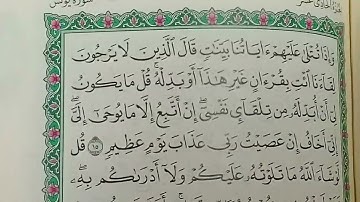 سورة يونس
وَإِذَا تُتْلَىٰ عَلَيْهِمْ ءَايَاتُنَا بَيِّنَٰتٍ قَالَ ٱلَّذِينَ لَا يَرْجُونَ
لِقَآءَنَا ٱئْتِ بِقُرْءَانٍ غَيْرِ هَٰذَآ أَوْ بَدِّلْهُ ۚ قُلْ مَا يَكُونُ
لِىٓ أَنْ أُبَدِّلَهُۥ مِن تِلْقَآئِ نَفْسِىٓ ۖ إِنْ أَتَّبِعُ إِلَّا مَا يُوحَىٰٓ إِلَىَّ ۖ
إِنِّىٓ أَخَافُ إِنْ عَصَيْتُ رَبِّى عَذَابَ يَوْمٍ عَظِيمٍ ١٥ قُل
لَّوْ شَآءَ ٱللَّهُ مَا تَلَوْتُهُۥ عَلَيْكُمْ وَلَآ أَدْرَىٰكُم بِهِۦ ۖ